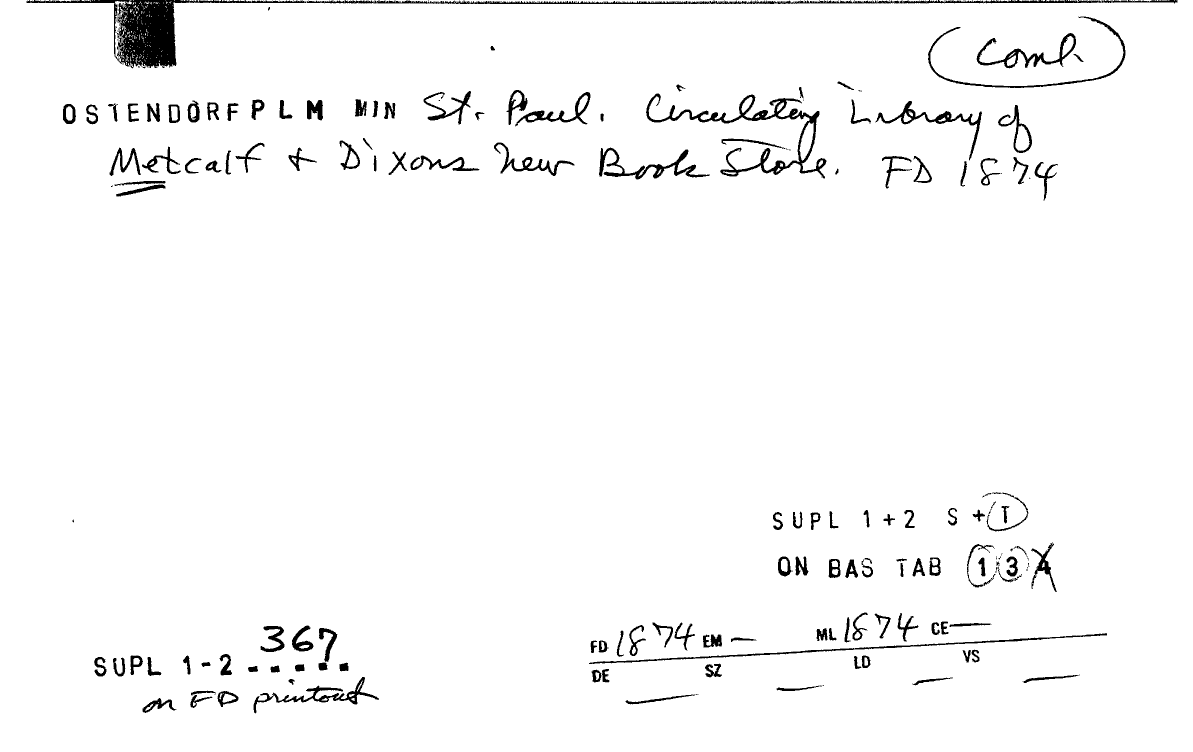 Coml.
OSTENDORF P L M MIN St. Paul. Circulating Library of
Metcalf + Dixons New Book Store. FD 1874
SUPL 1+2 S + T
ON BAS TAB 1 3 4
367
SUPL 1-2 - - - - -
on FD printout
FD 1874 EM — ML 1874 CE —
DE — SZ — LD — VS —